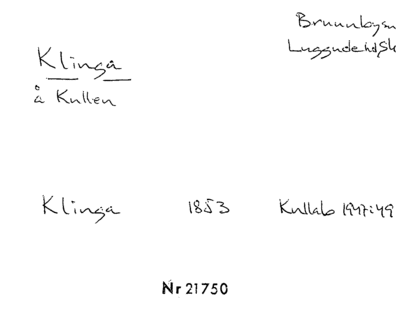 Brunnbysn
Luggudehd Sk
Klinga
å Kullen
Klinga 1853 Kullab 1947:49
Nr 21750